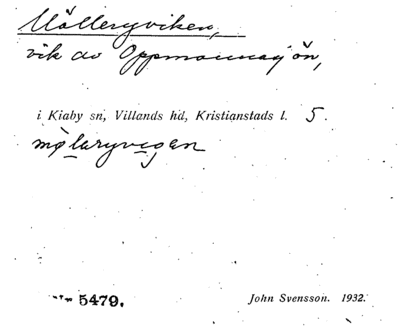 Mölleryviken,
vik av Oppmannasjön,
i Kiaby sn, Villands hd, Kristianstads l. 5.
mø̀laryvegen
5479.
John Svensson. 1932.